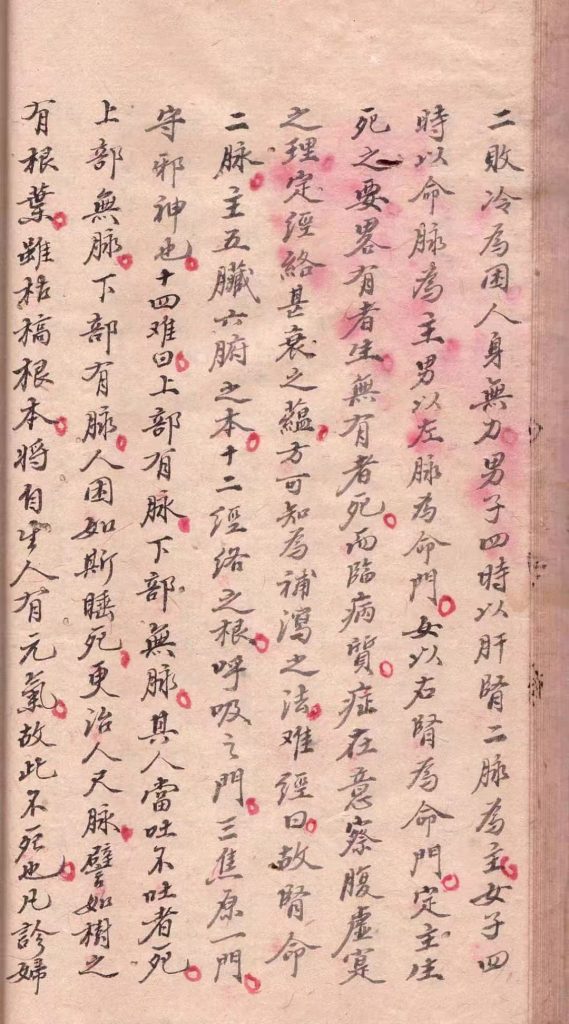 二敗冷為困人身無力男子四時以肝腎二脉為主女子四
時以命脉為主男以左脉為命門女以右腎為命門定主生
死之要畧有者生無有者死而臨病質症在意察腹虛寔
之理定經絡甚衰之蘊方可知為補瀉之法难經曰故腎命
二脉主五臟六腑之本十二經络之根呼吸之門三焦原一門
守邪神也十四难曰上部有脉下部無脉其人當吐不吐者死
上部無脉下部有脉人困如斯睡死更治人尺脉譬如樹之
有根葉雖枯稿根本将自生人有元氣故此不死也凡診婦